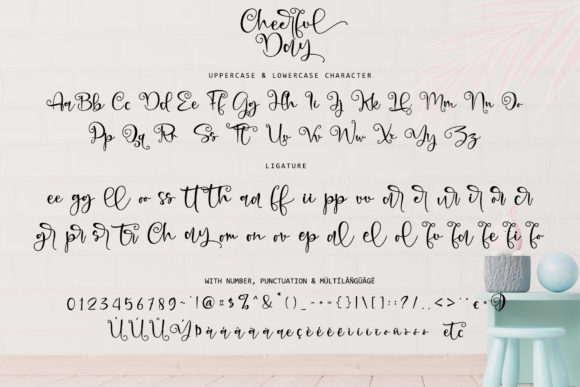 Cheerful
Day
UPPERCASE & LOWERCASE CHARACTER
Aa Bb Cc Dd Ee Ff Gg Hh Ii Jj Kk Ll Mm Nn Oo
Pp Qq Rr Ss Tt Uu Vv Ww Xx Yy Zz
LIGATURE
ee gg ll oo ss tt th aa ff ii pp vv ar er ur ir or cr
gr pr sr tr Ch ay om on ov ep al el ol fu fa fe fi fo
WITH NUMBER, PUNCTUATION & MÜLTÍLÀÑGÜÂGË
0123456789~`!@#$%^&*()_-+={}|\[]:;?/.,<>
etc